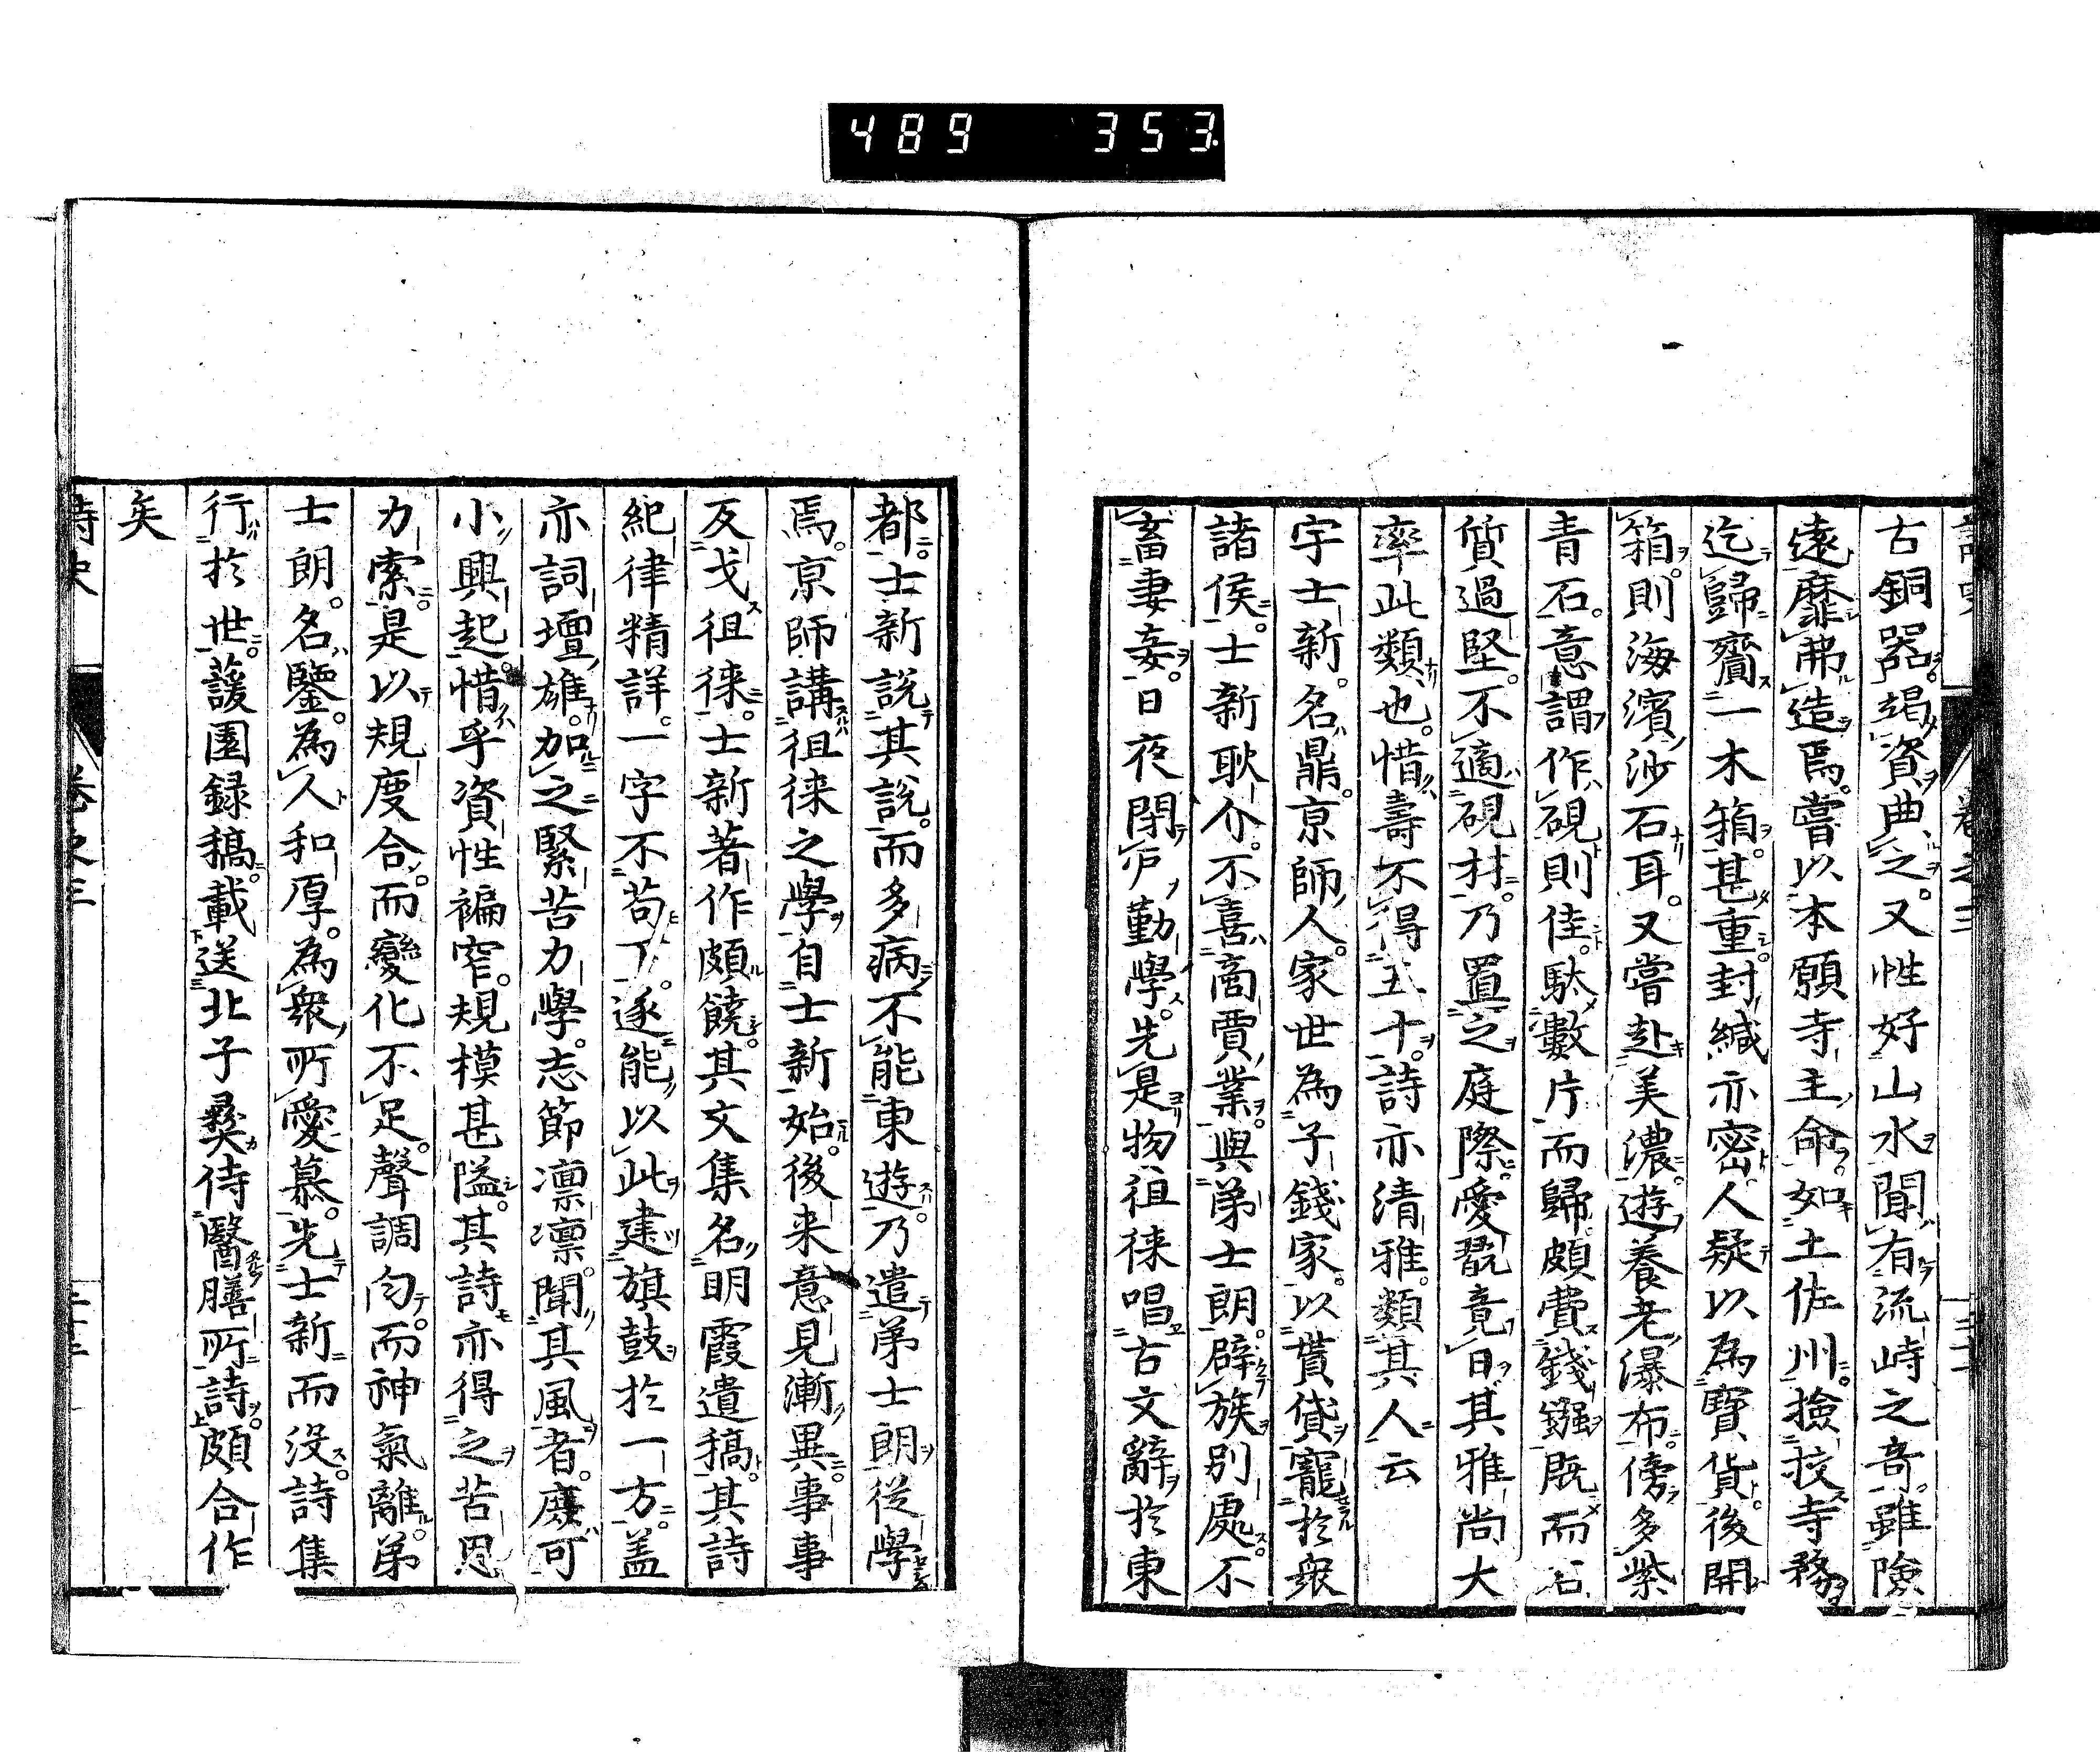 489 353
古銅器竭資典之又性好山水聞有流峙之竒雖險
遠靡弗造焉嘗以本願寺主命如土佐州撿挍寺務
迄歸齎一木箱甚重封緘亦密人疑以為寶貨後開
箱則海濱沙石耳又嘗赴美濃遊養老瀑布傍多紫
青石意謂作硯則佳駄數片而歸頗費錢鏹既而石
質過堅不適硯材乃置之庭際愛翫竟日其雅尚大
率此類也惜壽不得五十詩亦清雅類其人云
宇士新名鼎京師人家世為子錢家以貰貸寵於衆
諸侯士新耿介不喜商賈業與弟士朗辟族別處不
畜妻妾日夜閉戸勤學先是物徂徠唱古文辭於東
都士新說其說而多病不能東遊乃遣弟士朗從學
焉京師講徂徠之學自士新始後来意見漸異事事
反戈徂徠士新著作頗饒其文集名明霞遺稿其詩
紀律精詳一字不苟下遂能以此建旗鼓於一方盖
亦詞壇雄加之緊苦力學志節凛凛聞其風者庶可
小興起惜乎資性褊窄規模甚隘其詩亦得之苦思
力索是以規度合而變化不足聲調匀而神氣離弟
士朗名鑒為人和厚為衆所愛慕先士新而没詩集
行於世蘐園録稿載送北子彜侍醫膳所詩頗合作
矣